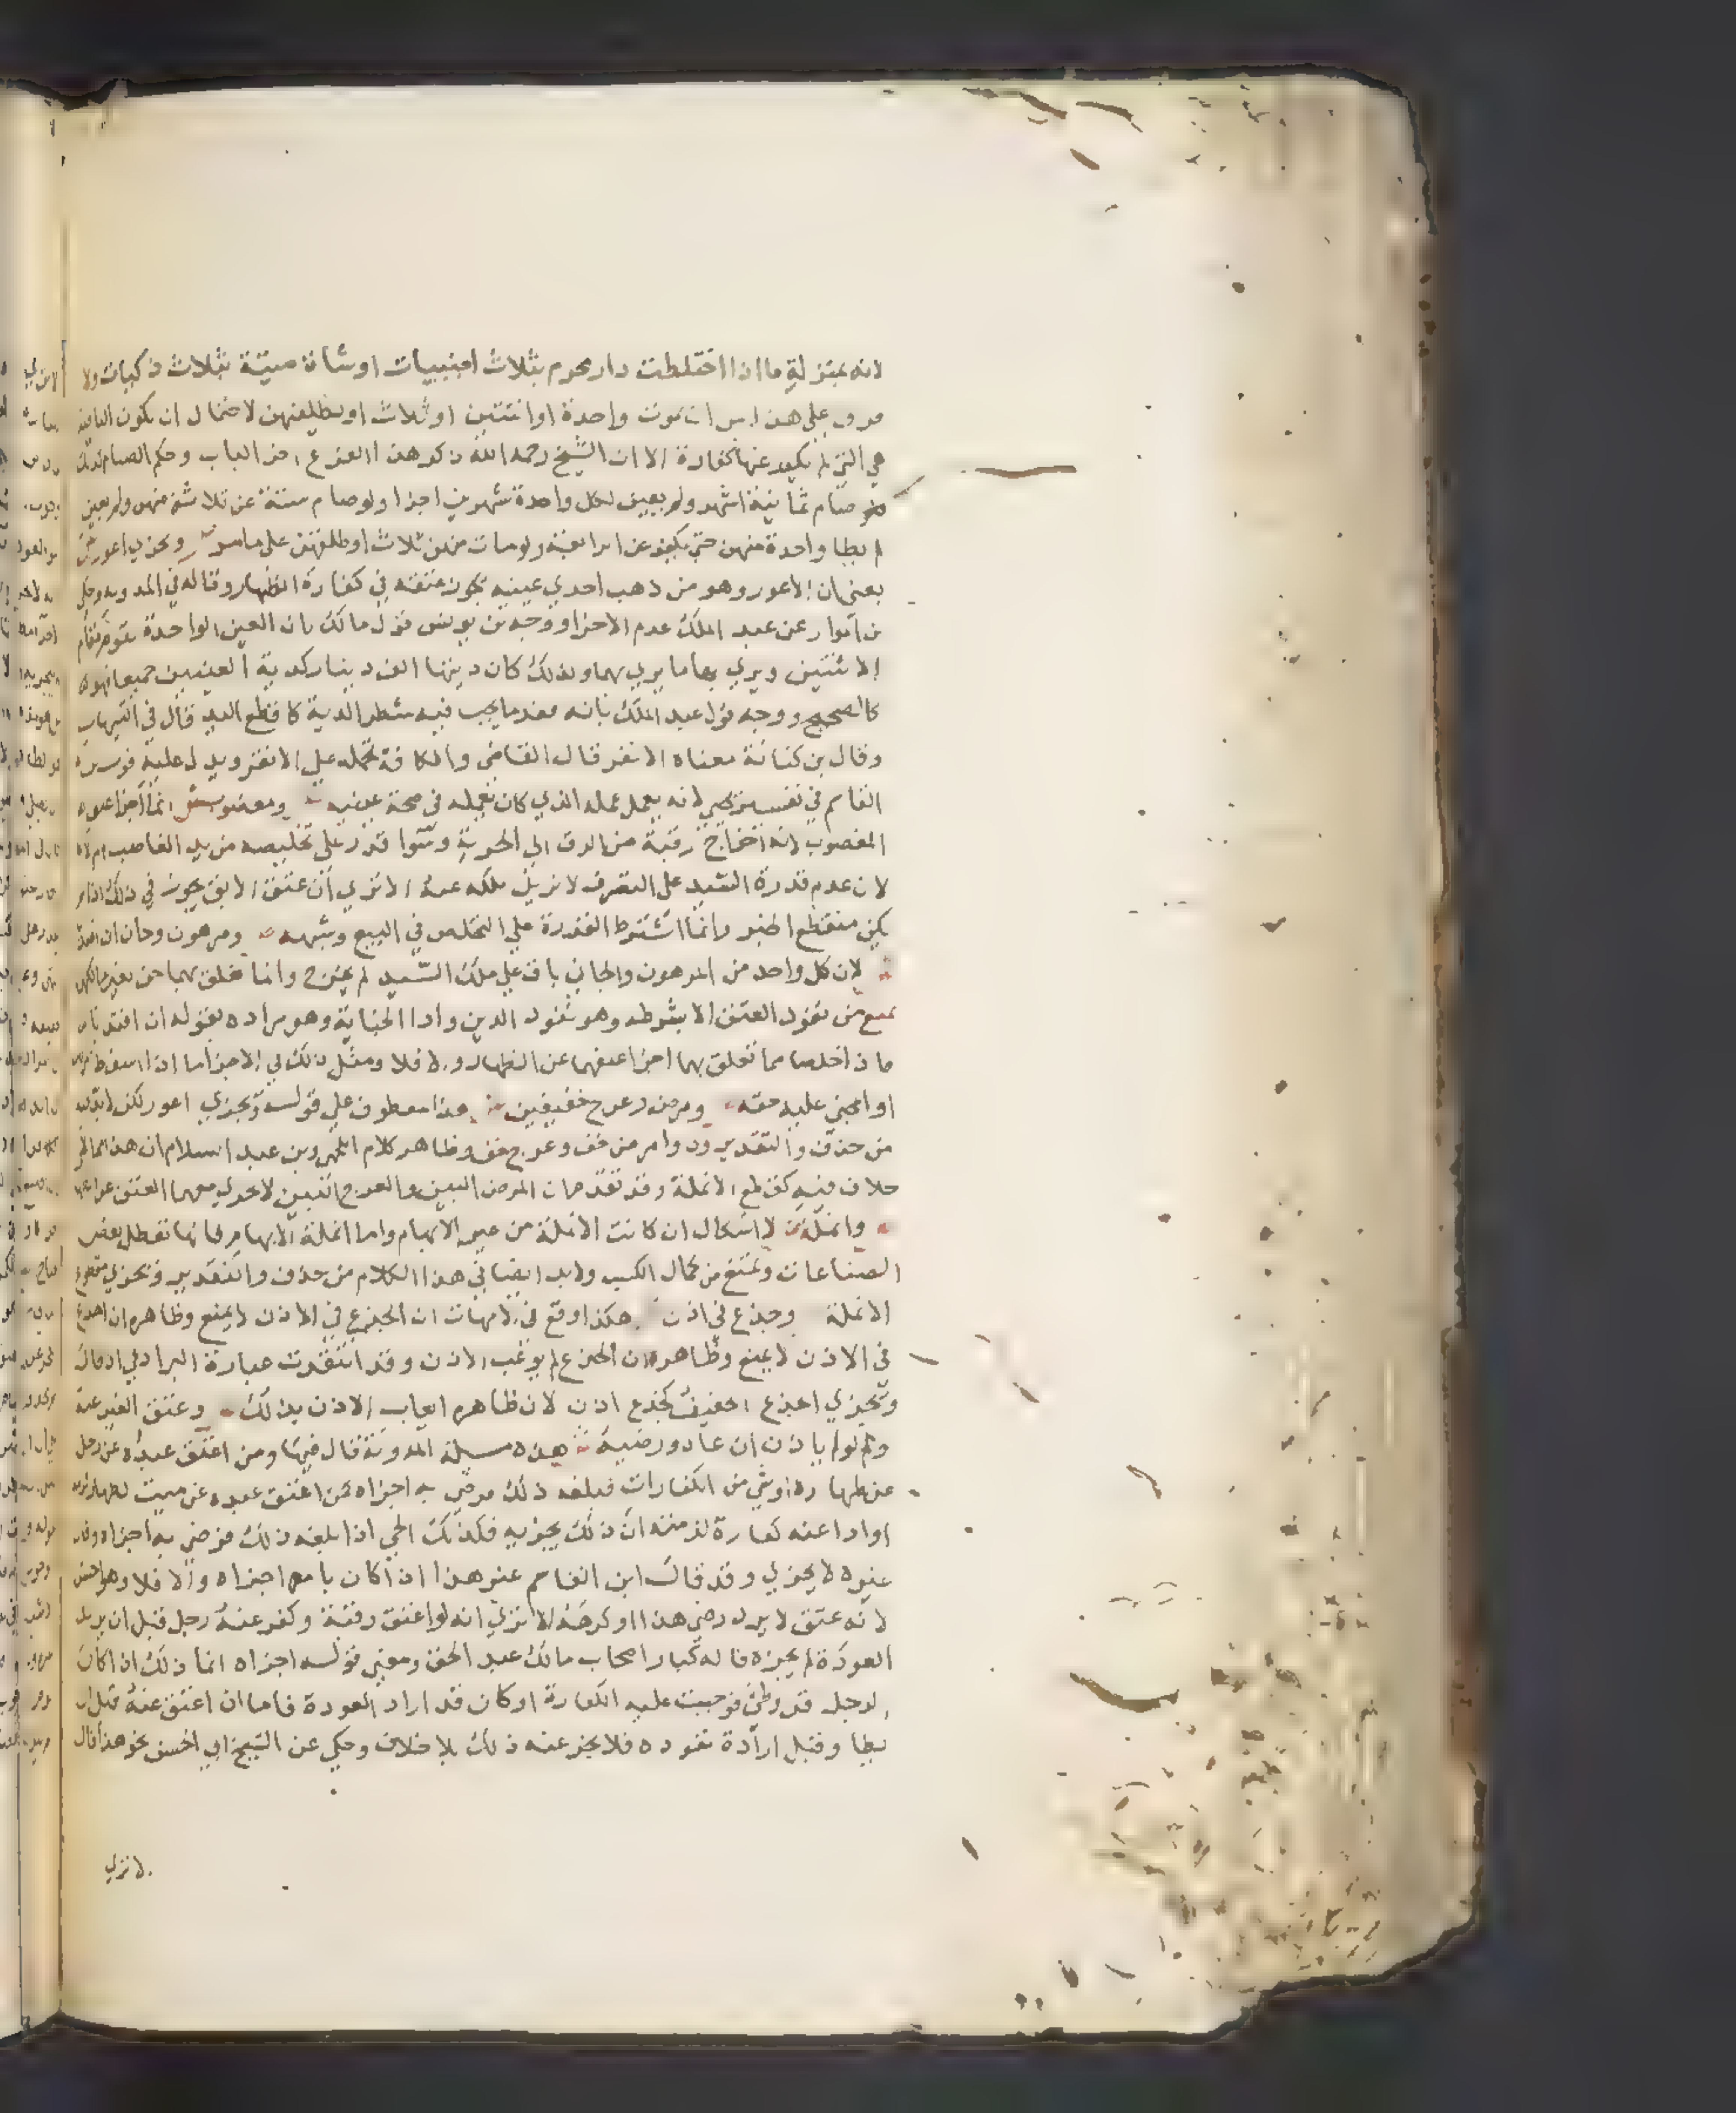 لانه بمنزلة ما اذا اختلطت ذار محرم بثلاث اجنبيات او شاة ميتة بثلاث ذكيات ولا
فرق على هذا بين ان تموت واحدة او اثنتين او ثلاث او يطلقهن لاحتمال ان تكون الباقية
هي التي لم يكفر عنها كفارة الا ان الشيخ رحمه الله ذكر هذا الفرع اخر الباب وحكم الصيام كذلك
صام ثمانية اشهر ولم يعين لكل واحدة شهرين اجزا ولو صام ستة عن ثلاثة منهن ولم يعين
لم يطا واحدة منهن حتى يكفر عن الرابعة ولو مات منهن ثلاث او طلقهن على ما مر ويجزي اعور
يعني ان الاعور وهو من ذهب احدي عينيه يجوز عتقه في كفارة الظهار وقاله في المدونة وحكي
بن المواز عن عبد الملك عدم الاجزا ووجه بن يونس قول مالك بان العين الواحدة تقوم مقام
الاثنتين ويري بها ما يري بهما ولذلك كان ديتها الف دينار كدية العينين جميعا فهو
كالصحيح ووجه قول عبد الملك بانه فقد ما يجب فيه شطر الدية كاقطع اليد قال في التنبيهات
وقال بن كنانة معناه الانفر قال القاضي والكافة تحمله علي الانقر ويدل عليه قوله بن
القاسم في نفسير يحيي لانه يعمل عمله الذي كان يعمله في صحة عينيه ومغصوب انما اجزا عتق
المغصوب لانه اخراج رقبة من الرق الي الحرية وسوا قدر علي تخليصه من يد الغاصب ام لا
لان عدم قدرة السيد على التصرف لا يزيل ملكه عنه الا تري ان عتق الابق يجوز في ذلك اذا لم
يكن منقطع الخبر وانما اشترط القدرة علي التخلص في البيع وشبهه ومرهون وجان ان افتديا
لان كل واحد من المرهون والجاني باق علي ملك السيد لم يخرج وانما تعلق بهما حق لغير مالكهما
يمنع من نفوذ العتق الا بشرطه وهو نفوذ الدين وادا الجناية وهو مراده بقوله ان افتديا
فاذا خلصا مما تعلق بهما اجزا عتقهما عن الظهار والا فلا ومثل ذلك في الاجزا ما اذا اسقط
او المجني عليه حقه ومرض وعرج خفيفين هذا معطوف علي قوله ويجزي اعور لكن لا بد فيه
من حذف والتقدير وذو مرض خف وعرج خف وظاهر كلام اللخمي وبن عبد السلام ان هذا مما لا
خلاف فيه كقطع الانملة وقد تقدم ان المرض البين والعرج البين لا يجزي معهما العتق
وانملة لا اشكال ان كانت الانملة من غير الابهام واما انملة الابهام فانها تعطل بعض
الصناعات وتمنع من كمال الكسب ولا بد ايضا في هذا الكلام من حذف والتقدير ويجزي مقطوع
الانملة وجذع في اذن هكذا وقع في الامهات ان الجذع في الاذن لا يمنع وظاهره ان اجذع
في الاذن لا يمنع وظاهره ان الجذع لم يوعب الاذن وقد انتقدت عبارة البرادعي اذ قال
ويجزي الجذع الخفيف كجذع اذن لان ظاهره ايعاب الاذن بذلك وعتق الغير عنه
ولو لم ياذن ان عاد ورضيه هذه مسيلة المدونة قال فيها ومن اعتق عبده عن رجل
عن ظهاره او شي من الكفارات فبلغه ذلك فرضي به اجزاه كمن اعتق عبده عن ميت لظهار لزمه
او ادا عنه كفارة لزمته ان ذلك يجزيه فكذلك الحي اذا بلغه ذلك فرضي به اجزاه وقال
غيره لا يجزي وقد قال ابن القاسم غير هذا اذا كان بامره اجزاه والا فلا وهو احسن
لانه عتق لا يرد رضي هذا او كرهه الا تري انه لو اعتق رقبة وكفر عنه رجل قبل ان يريد
العودة لم يجزه قاله كبار اصحاب مالك عبد الحق ومعني قوله اجزاه انما ذلك اذا كان
الرجل قد وطئ فوجبت عليه الكفارة او كان قد اراد العودة فاما ان اعتق عنه قبل ان
يطا وقبل ارادة تعوده فلا يجز عنه ذلك بلا خلاف وحكي عن الشيخ ابي الحسن نحو هذا قال
لا تري